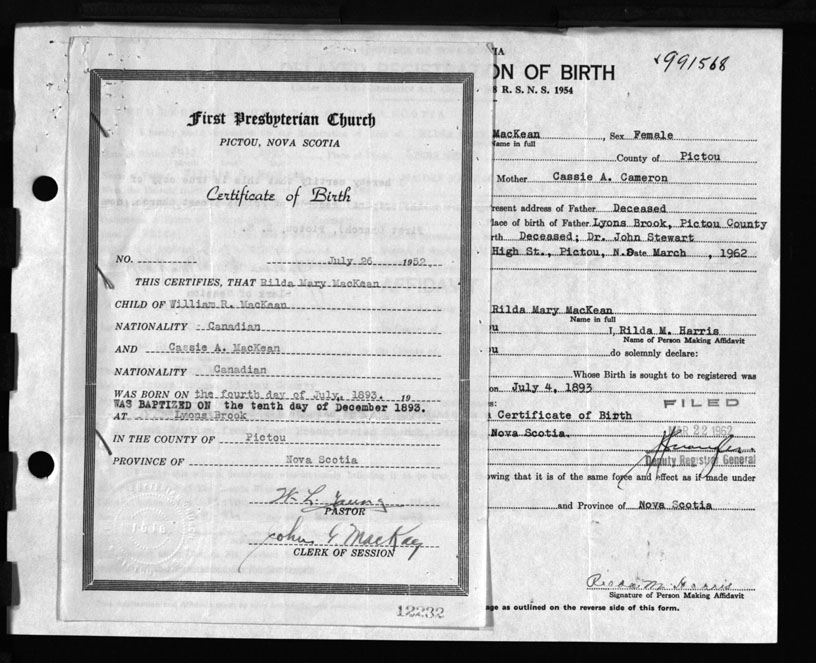 First Presbyterian Church
PICTOU, NOVA SCOTIA
Certificate of Birth
NO.
July 26 1952
THIS CERTIFIES, THAT Rilda Mary MacKean
CHILD OF William R. MacKean
NATIONALITY Canadian
AND Cassie A. MacKean
NATIONALITY Canadian
WAS BORN ON the fourth day of July, 1893. 19
WAS BAPTIZED ON the tenth day of December 1893.
AT Lyons Brook
IN THE COUNTY OF Pictou
PROVINCE OF Nova Scotia
W. L. Young
PASTOR
John G MacKay
CLERK OF SESSION
12232
IA
991568
ON OF BIRTH
8 R. S. N. S. 1954
MacKean, Sex Female
Name in full
County of Pictou
Mother Cassie A. Cameron
resent address of Father Deceased
lace of birth of Father Lyons Brook, Pictou County
rth Deceased; Dr. John Stewart
High St., Pictou, N.S Date March , 1962
Rilda Mary MacKean
Name in full
ou I, Rilda M. Harris
Name of Person Making Affidavit
ou do solemnly declare:
Whose Birth is sought to be registered was
on July 4, 1893
es: FILED
Certificate of Birth
Nova Scotia. MAR 22 1962
Deputy Registrar General
owing that it is of the same force and effect as if made under
and Province of Nova Scotia
Rilda M. Harris
Signature of Person Making Affidavit
age as outlined on the reverse side of this form.